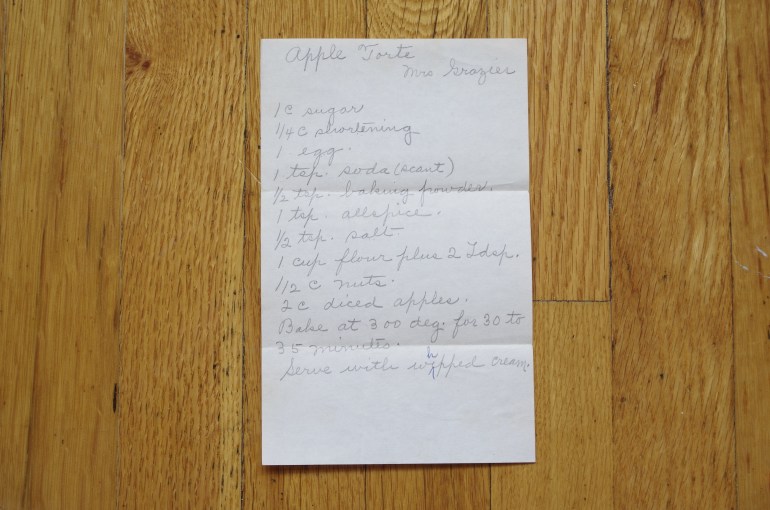 Apple Torte
Mrs Grazier
1 c sugar
1/4 c shortening
1 egg.
1 tsp. soda (scant)
1/2 tsp. baking powder.
1 tsp. allspice.
1/2 tsp. salt
1 cup flour plus 2 Tdsp.
1/2 c nuts.
2 c diced apples.
Bake at 300 deg. for 30 to
35 minutes.
Serve with whpped cream.